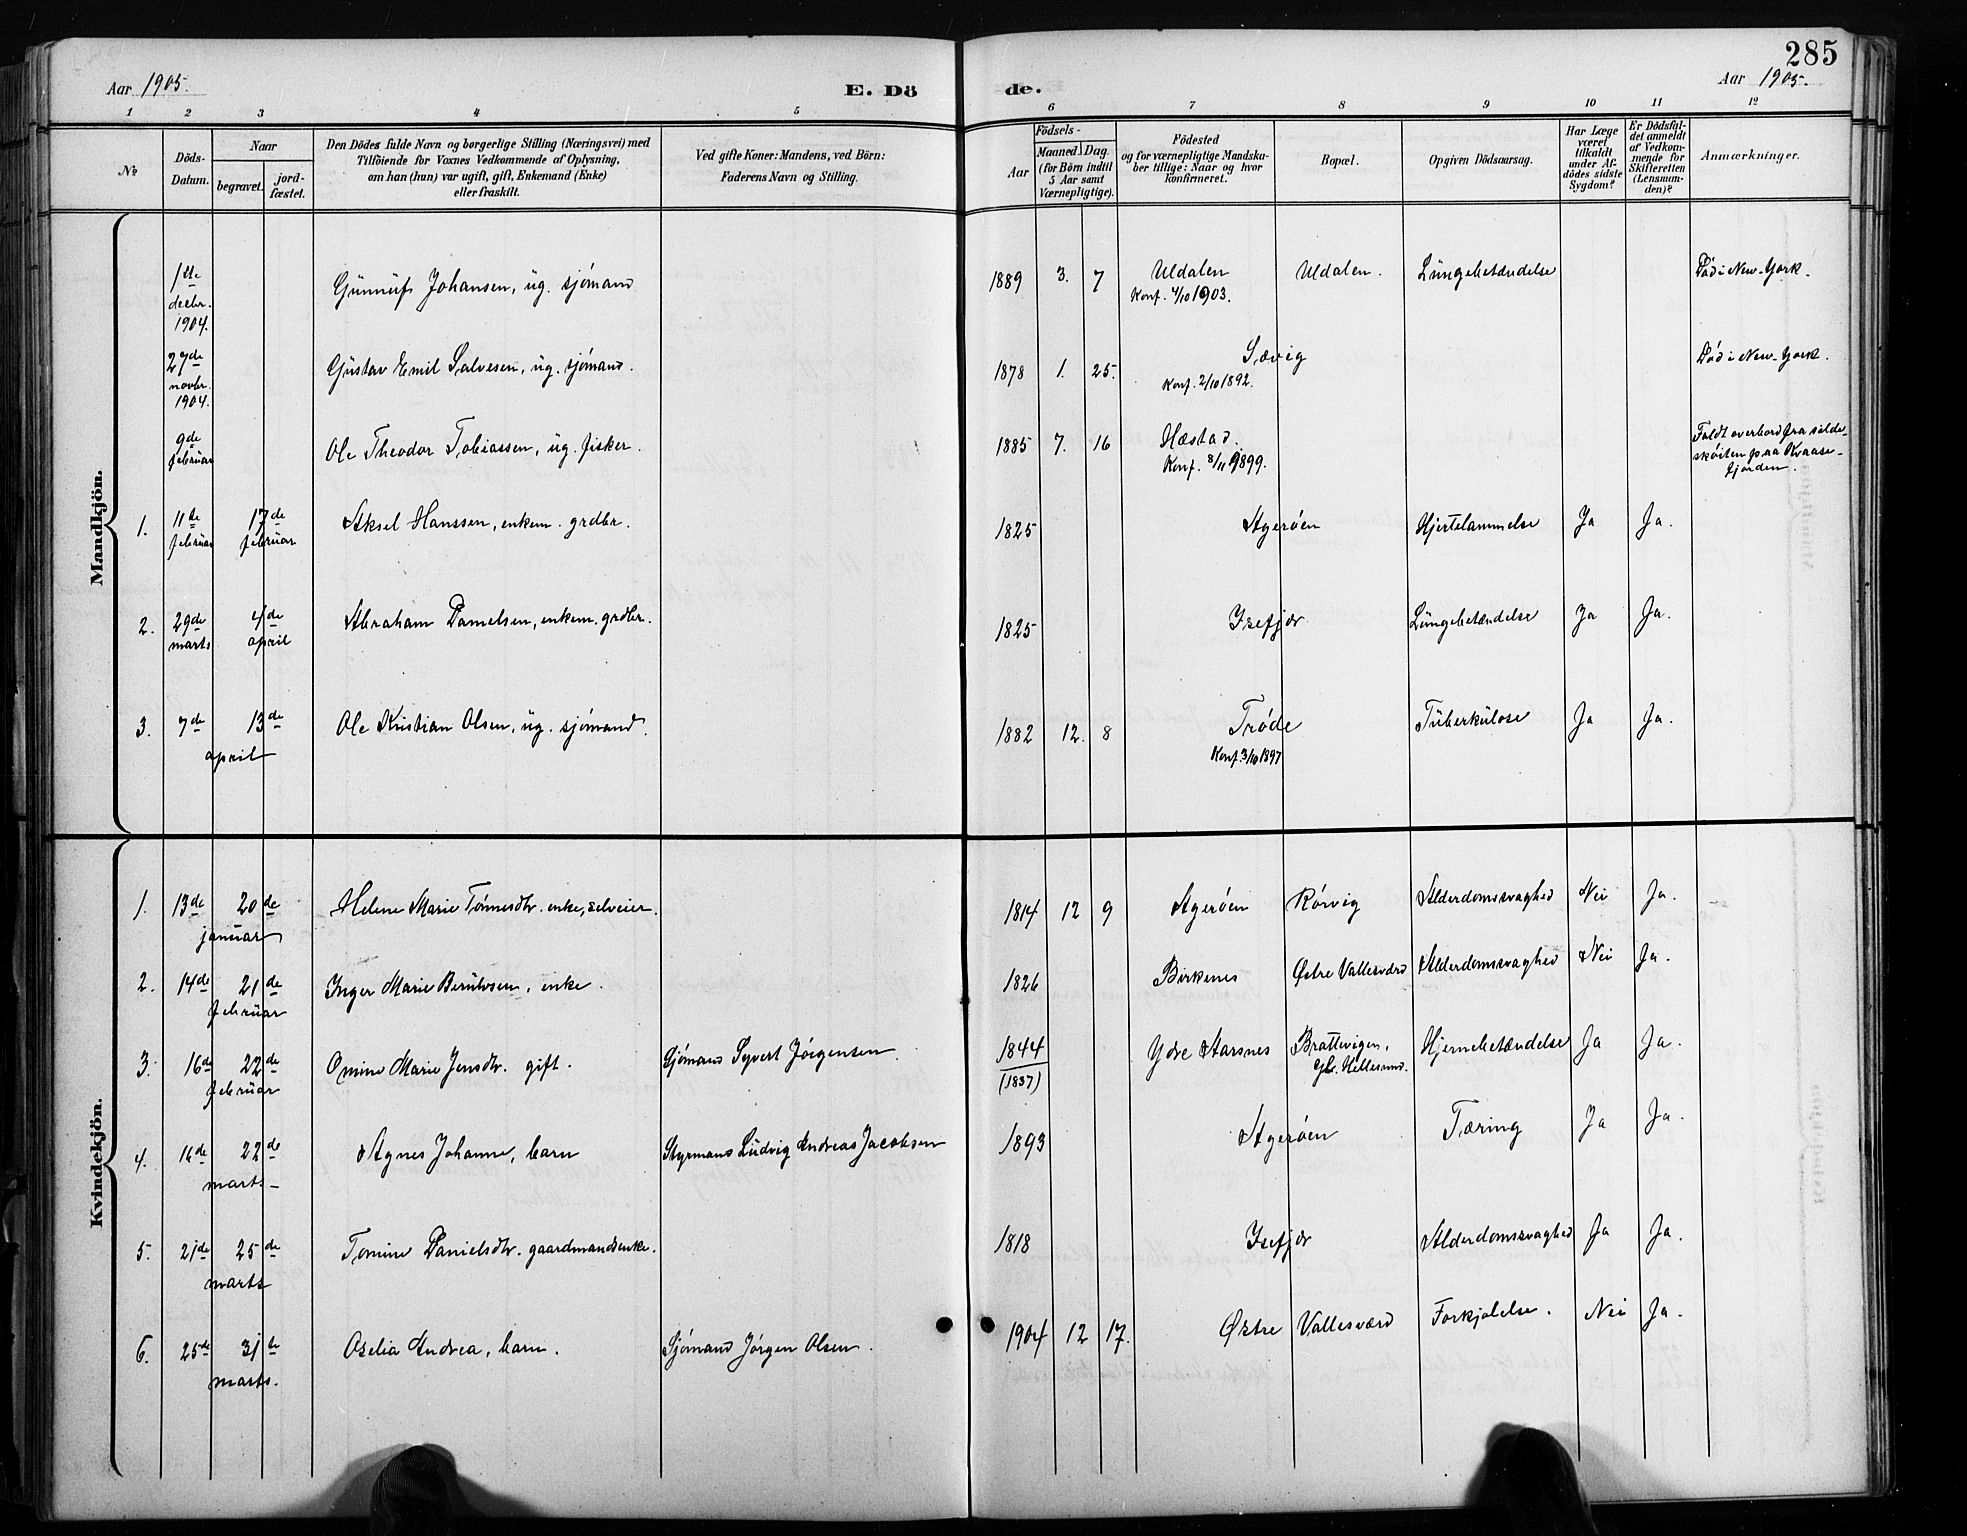 285
Aar 1905.
E. Dö
de.
Aar 1905.
1 2 3 4 5 6 7 8 9 10 11 12
№
Döds-
Datum.
Naar
begravet.
jord-
fæstet.
Den Dödes fulde Navn og borgerlige Stilling (Næringsvei) med
Tilföiende for Voxnes Vedkommende af Oplysning,
om han (hun) var ugift, gift, Enkemand (Enke)
eller fraskilt.
Ved gifte Koner: Mandens, ved Börn:
Faderens Navn og Stilling.
Födsels-
Aar
Maaned. Dag.
(for Börn indtil
5 Aar samt
Værnepligtige).
Födested
og for værnepligtige Mandska-
ber tillige: Naar og hvor
konfirmeret.
Bopæl.
Opgiven Dödsaarsag.
Har Læge
været
tilkaldt
under Af-
dödes sidste
Sygdom?
Er Dödsfal-
det anmeldt
af Vedkom-
mende for
Skifteretten
(Lensman-
den)?
Anmærkninger.
Mandkjön.
1ste
decbr.
1904.
Gunnuf Johansen, ug. sjömand
1889 3. 7
Uldalen
Konf. 4/10 1903.
Uldalen.
Lungebetændelse
Död i New-York.
27de
novbr.
1904.
Gustav Emil Salvesen, ug. sjömand.
1878 1. 25.
Sævig
Konf. 2/10 1892.
Död i New-York.
9de
februar
Ole Theodor Tobiassen, ug. fisker.
1885 7. 16
Hæstad.
Konf. 8/11 1899.
Faldt overbord fra silde-
sköiten paa Kvaase-
fjorden.
1. 11te
februar
17de
februar
Aksel Hanssen, enkem. grdbr.
1825
Ageröen
Hjertelammelse
Ja
Ja.
2. 29de
marts
4de
april
Abraham Danielsen, enkem. grdbr.
1825
Isefjær
Lungebetændelse
Ja
Ja.
3. 7de 13de
april
Ole Kristian Olsen, ug. sjömand.
1882 12. 8
Tröde
Konf. 3/10 1897
Tuberkulose
Ja
Ja.
Kvindekjön.
1. 13de 20de
januar
Helene Marie Tönnesdtr. enke, selveier.
1814 12 9
Ageröen
Rörvig
Alderdomssvaghed
Nei
Ja.
2. 14de 21de
februar
Inger Marie, enke.
1826
Birkenes
Østre Vallesværd
Alderdomssvaghed
Nei
Ja.
3. 16de 22de
februar
Omine Marie Jensdtr. gift.
Sjömand Syvert Jörgensen
1844
(1837)
Ydre Aarsnes
Brattevigen,
Gl. Hellesund.
Hjernebetændelse
Ja
Ja.
4. 16de 22de
marts
Agnes Johanne, barn
Styrmand Ludvig Andreas Jacobsen
1893
Ageröen
Tæring
Ja
Ja.
5. 21de 25de
marts
Tomine Danielsdtr. gaardmandsenke.
1818
Isefjær
Alderdomssvaghed
Ja
Ja.
6. 25de 31te
marts.
Oselia Andrea, barn.
Sjömand Jörgen Olsen.
1904 12 17.
Østre Vallesværd
Forkjölelse.
Nei
Ja.